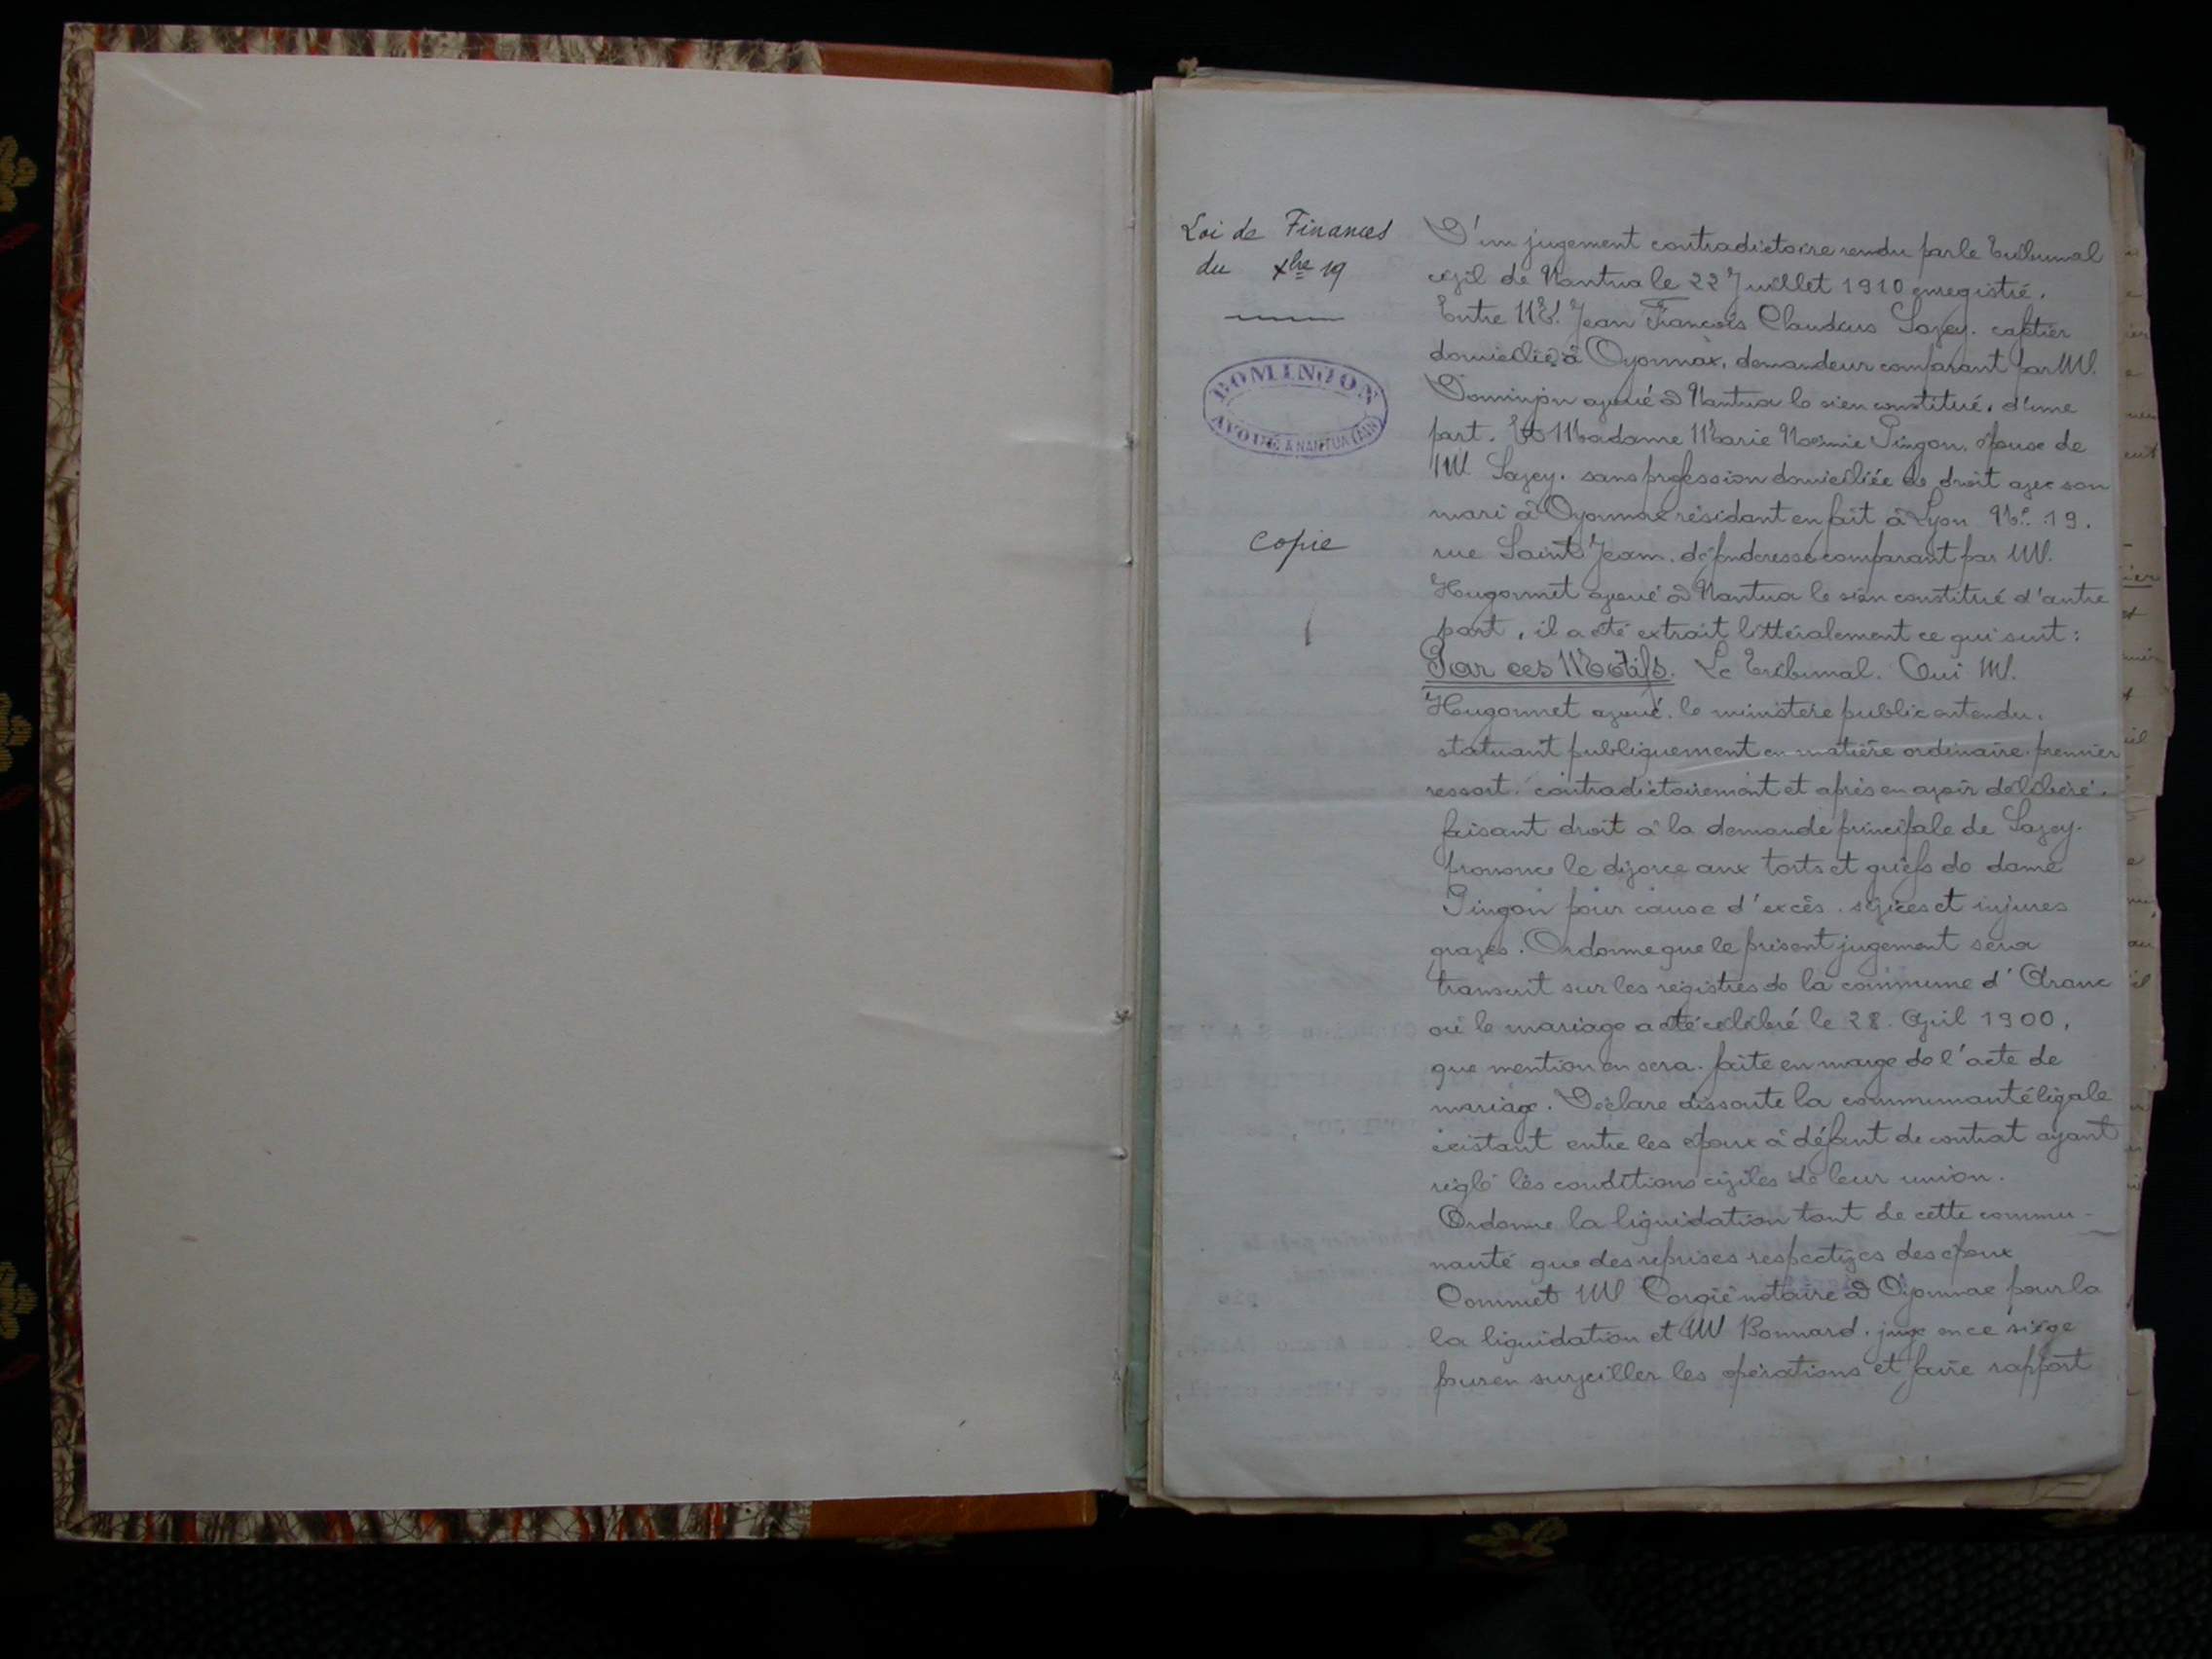 Loi de Finances
du xbre 19
DOMINJON
AVOUÉ A NANTUA (AIN)
Copie
D'un jugement contradictoire rendu par le Tribunal
civil de Nantua le 22 Juillet 1910 enregistré.
Entre M. Jean François Claudius Savey. cafetier
domicilié à Oyonnax, demandeur comparant par M.
Dominjon avoué à Nantua le sien constitué. d'une
part. Et Madame Marie Noémie Pingon. épouse de
M Savey. sans profession domiciliée de droit avec son
mari à Oyonnax résidant en fait à Lyon No. 19.
rue Saint Jean. défenderesse comparant par M.
Hugonnet avoué à Nantua le sien constitué d'autre
part, il a été extrait littéralement ce qui suit :
Par ces Motifs. Le Tribunal. Oui M.
Hugonnet avoué. le ministère public entendu.
statuant publiquement en matière ordinaire. premier
ressort. contradictoirement et après en avoir délibéré.
faisant droit à la demande principale de Savey.
prononce le divorce aux torts et griefs de dame
Pingon pour cause d'excès. sévices et injures
graves. Ordonne que le présent jugement sera
transcrit sur les registres de la commune d'Aranc
où le mariage a été célébré le 28. Avril 1900,
que mention en sera. faite en marge de l'acte de
mariage. Déclare dissoute la communauté légale
existant entre les époux à défaut de contrat ayant
réglé les conditions civiles de leur union.
Ordonne la liquidation tant de cette commu-
nauté que des reprises respectives des époux
Commet M notaire à Oyonnax pour la
la liquidation et M Bonnard. juge en ce siège
pour en surveiller les opérations et faire rapport